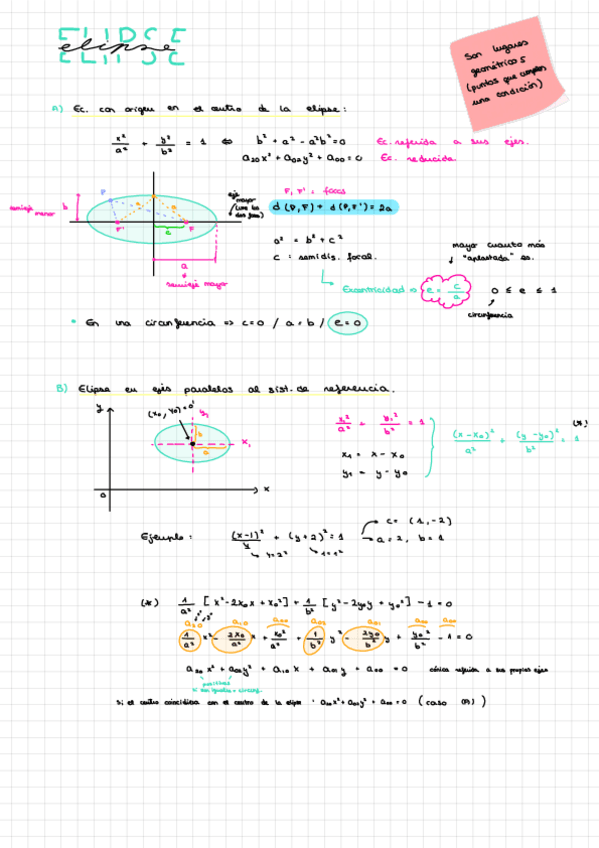 ELIPSE
elipse
Son lugares
geométricos
(puntos que cumplen
una condición)
A) Ec. con origen en el centro de la elipse:
x²/a² + y²/b² = 1 ⇔ b² + a² - a²b² = 0 Ec. referida a sus ejes.
a₂₀x² + a₀₂y² + a₀₀ = 0 Ec. reducida.
F, F' : focos
d(P,F) + d(P,F') = 2a
semieje menor
b
P
a
a
eje mayor
F'
c
F
a
semieje mayor
a² = b² + c²
c : semidis. focal.
mayor cuanto más
"aplastada" es.
Excentricidad ⇒ e = c/a 0 ≤ e ≤ 1
circunferencia
• En una circunferencia ⇒ c=0 / a=b / e=0
B) Elipse en ejes paralelos al sist. de referencia.
y
(x₀, y₀)=0'
y₁
b
a
x₁
x
0
x₁²/a² + y₁²/b² = 1
x₁ = x - x₀
y₁ = y - y₀
(x-x₀)²/a² + (y-y₀)²/b² = 1 (*)
Ejemplo: (x-1)²/4 + (y+2)² = 1
c = (1,-2)
a = 2, b = 1
4=2² 1=1²
(*) 1/a² [x²-2x₀x+x₀²] + 1/b² [y²-2y₀y+y₀²] - 1 = 0
a₂₀ a₁₀ a₀₀ a₀₂ a₀₁ a₀₀ a₀₀
1/a² x² - 2x₀/a² x + x₀²/a² + 1/b² y² - 2y₀/b² y + y₀²/b² - 1 = 0
a₂₀x² + a₀₂y² + a₁₀x + a₀₁y + a₀₀ = 0 cónica referida a sus propios ejes
positivos
si son iguales = circunf.
Si el centro coincidiera con el centro de la elipse : a₂₀x² + a₀₂y² + a₀₀ = 0 (caso (A))